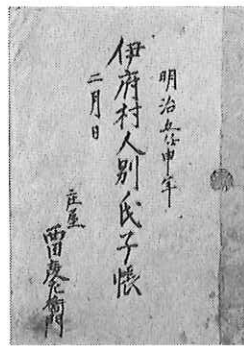 明治五壬申年
伊府村人別氏子帳
二月日
庄屋
西田慶左衛門